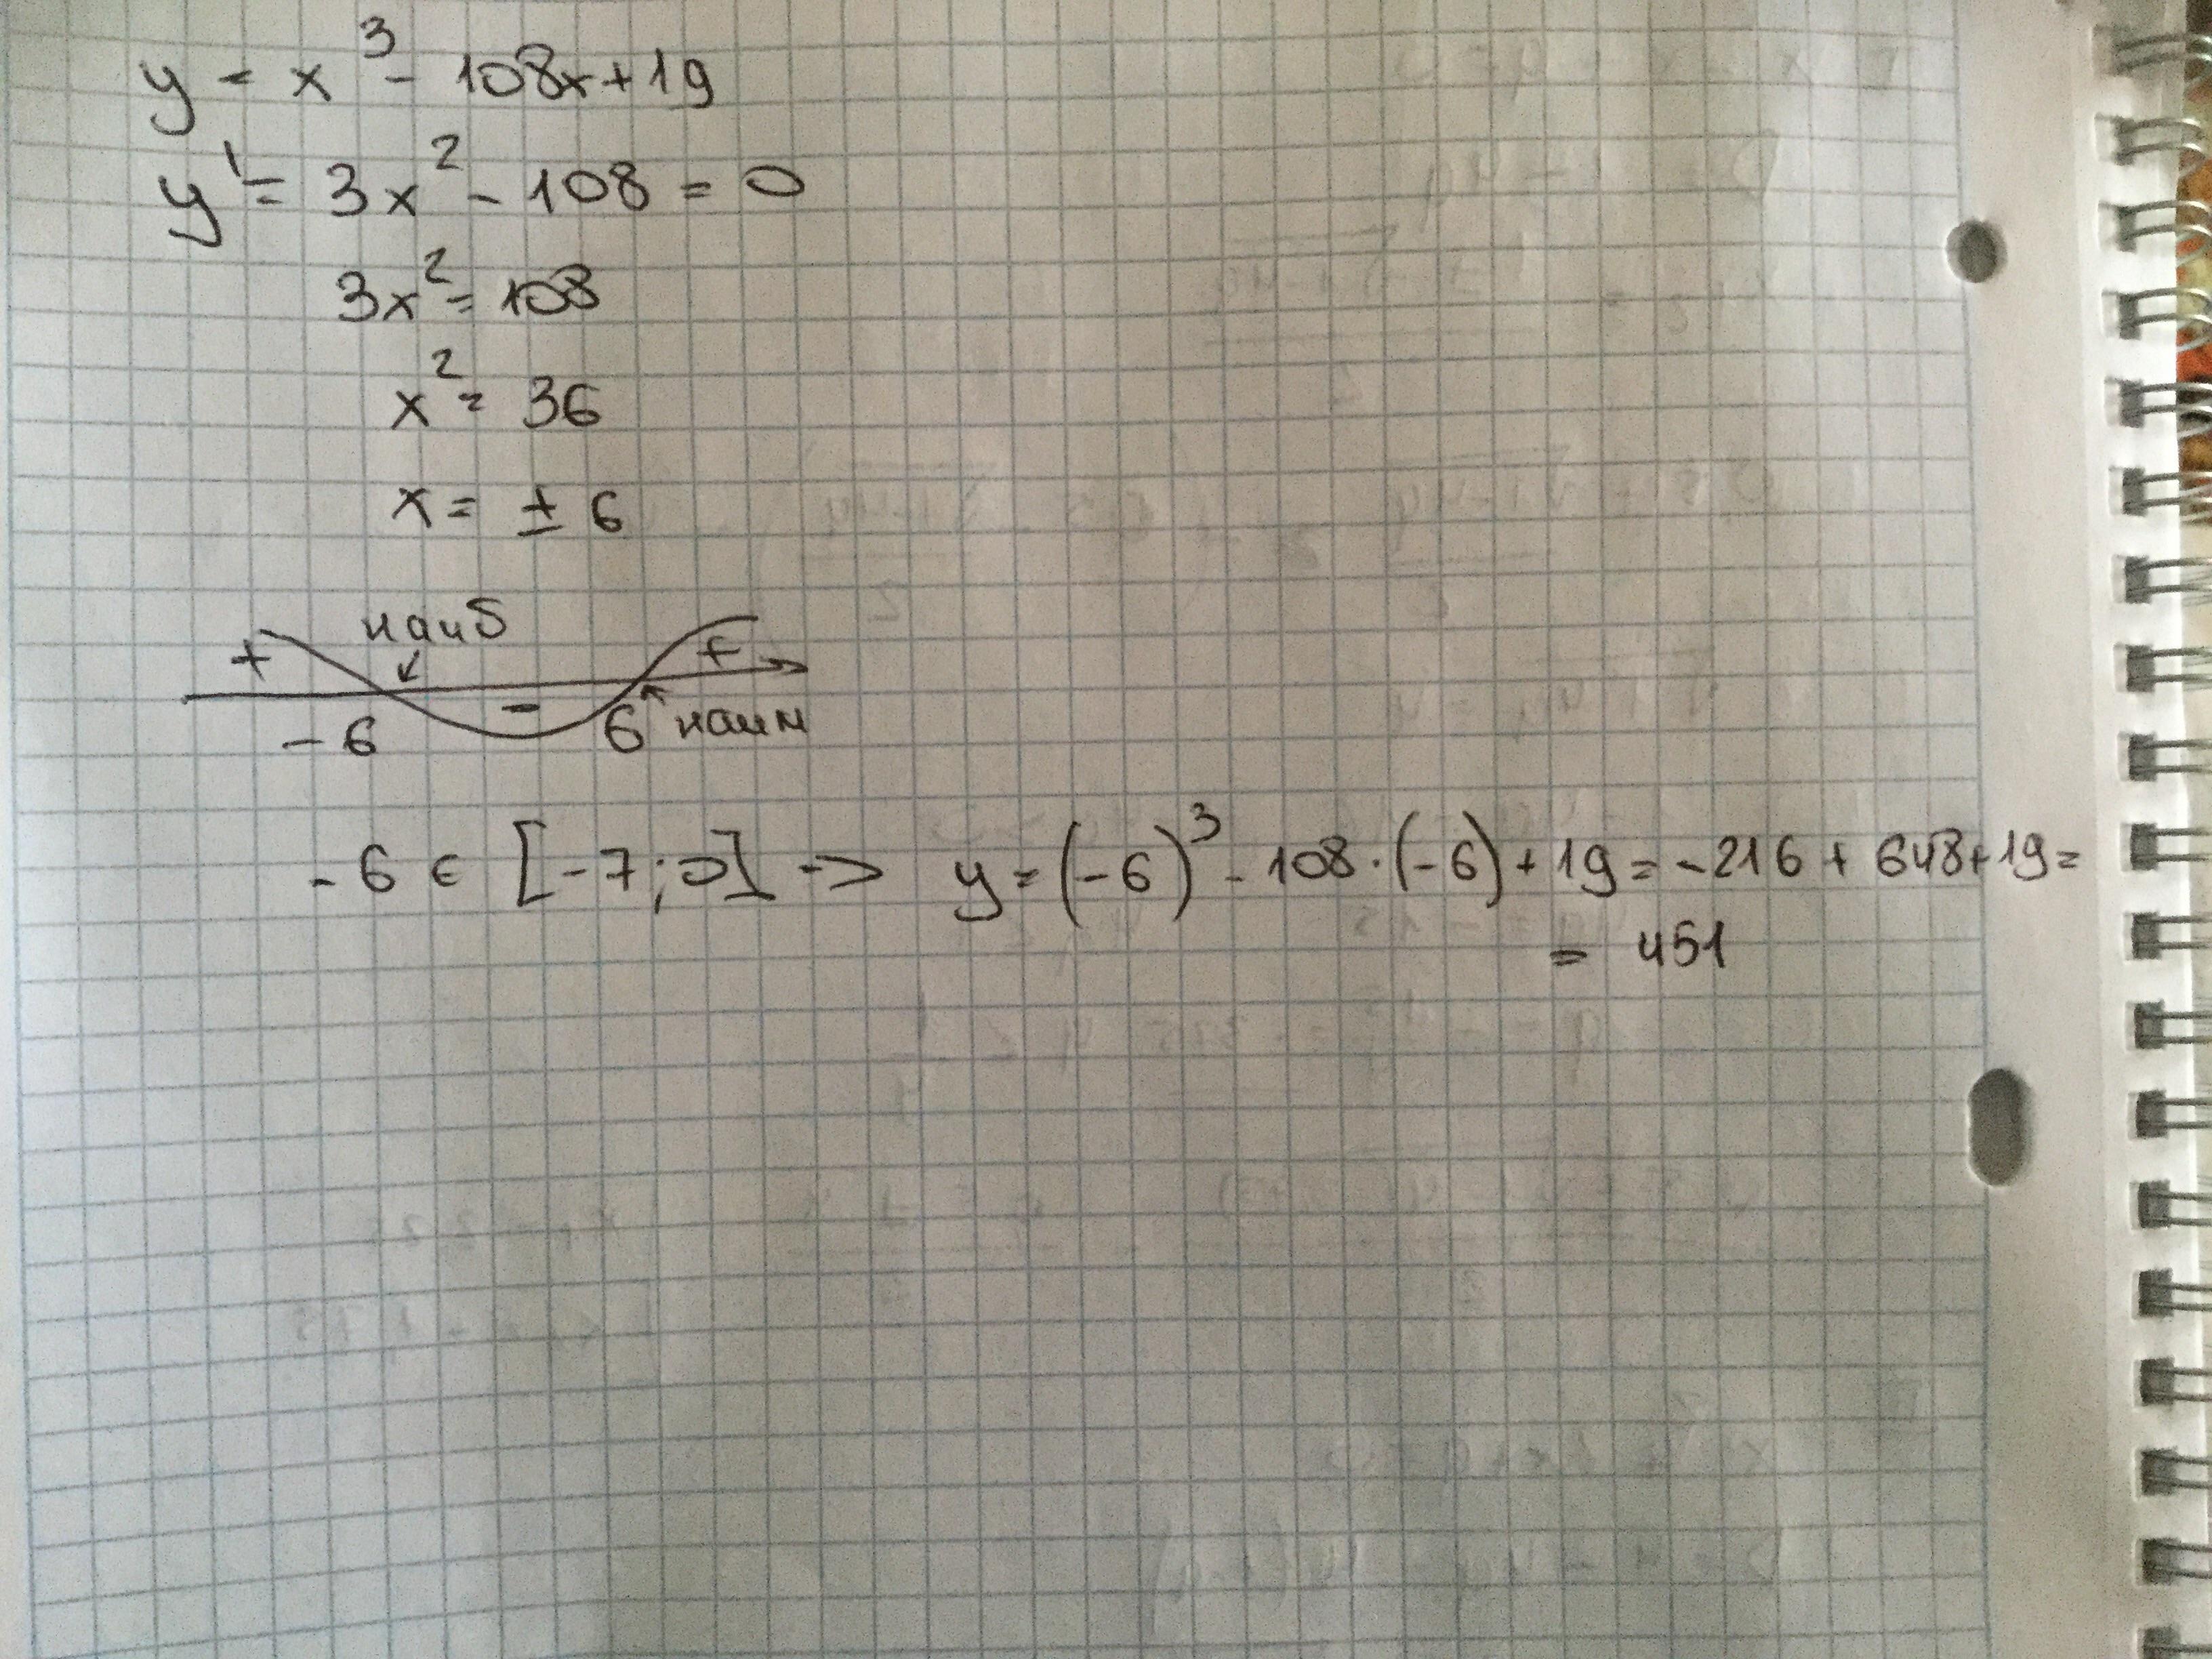 y = x³ - 108x + 19
y' = 3x² - 108 = 0
3x² = 108
x² = 36
x = ± 6
+ наиб - +
-6 6 наим
-6 ∈ [-7;0] -> y = (-6)³ - 108·(-6) + 19 = -216 + 648 + 19 =
= 451